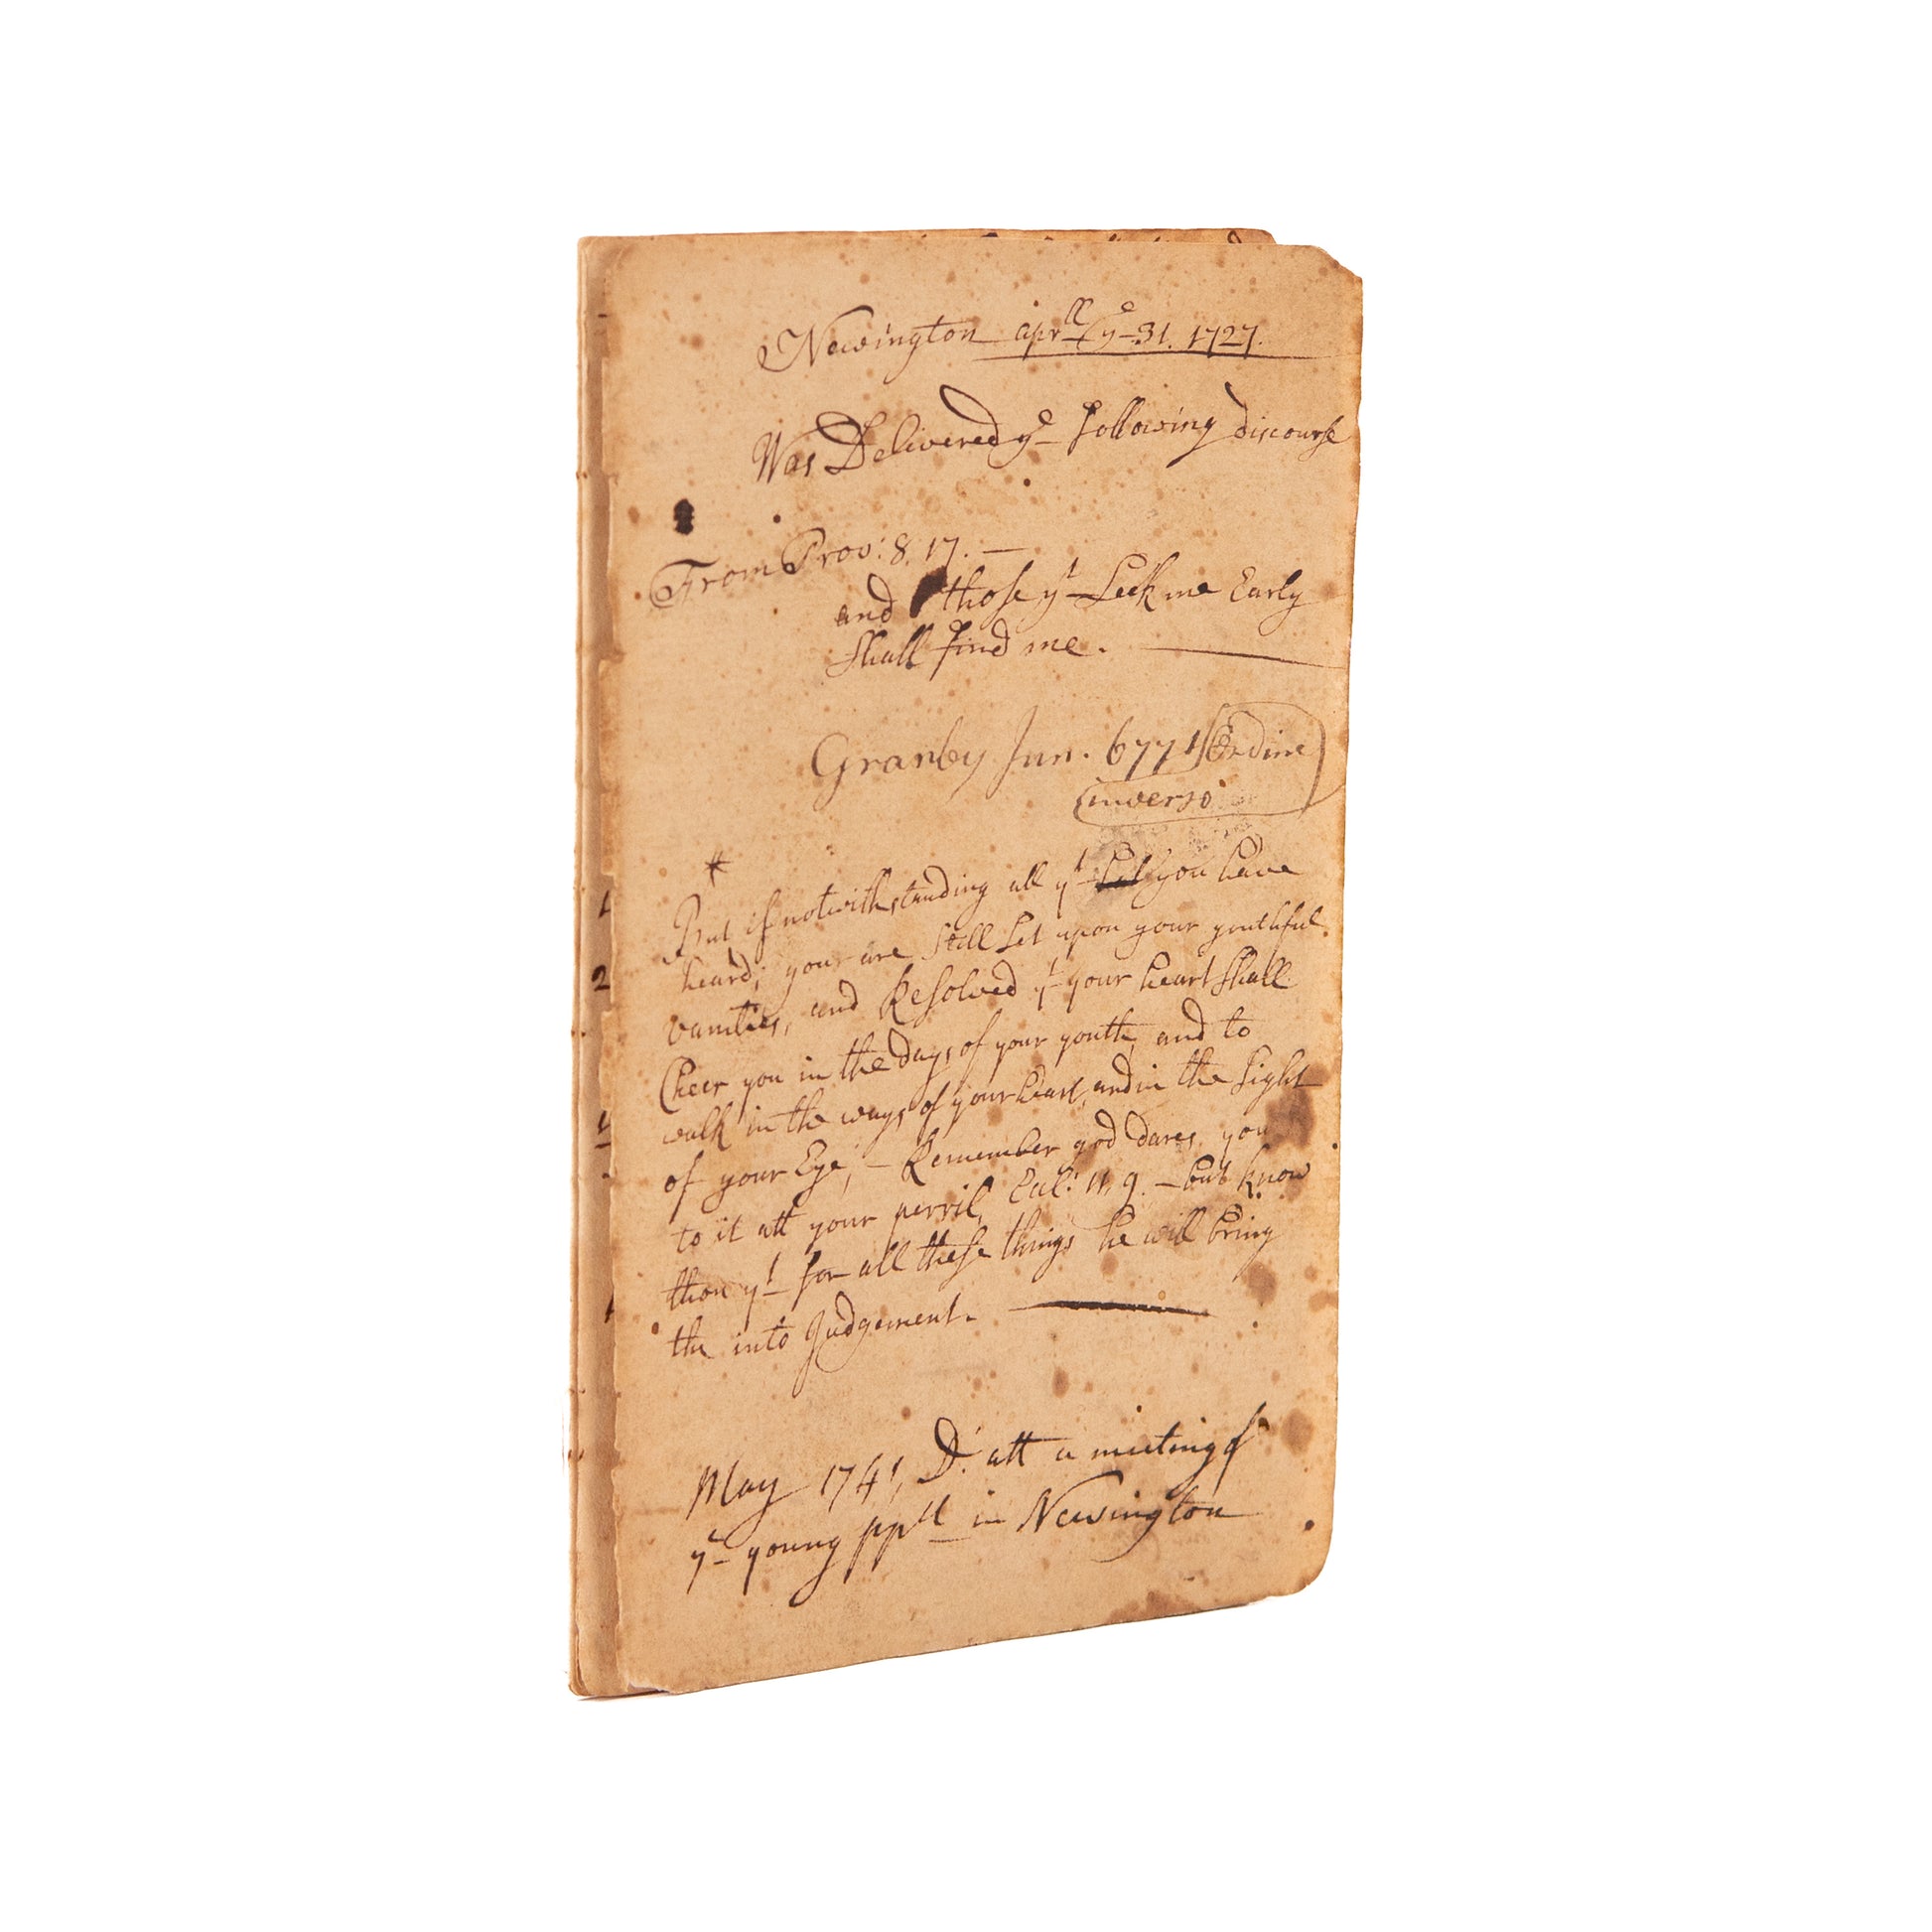 Newington aprll ye 31. 1727.
Was Delivered ye following discourse
From Prov: 8. 17. —
and those yt Seek me Early
Shall find me. —
Granby Jun. 6771 (Ordine
inverso)
*
But if notwithstanding all yt you have
heard; your are Still Set upon your youthful
vanities, and Resolved yt your heart Shall
Cheer you in the Days of your youth, and to
walk in the ways of your heart, and in the Sight
of your Eye, — Remember god dares you
to it att your perril, Ecl: 11, 9. — but know
thou yt for all these things he will bring
the into Judgement. —
May 1741, D. att a meeting of
ye young ppll in Newington
1
2